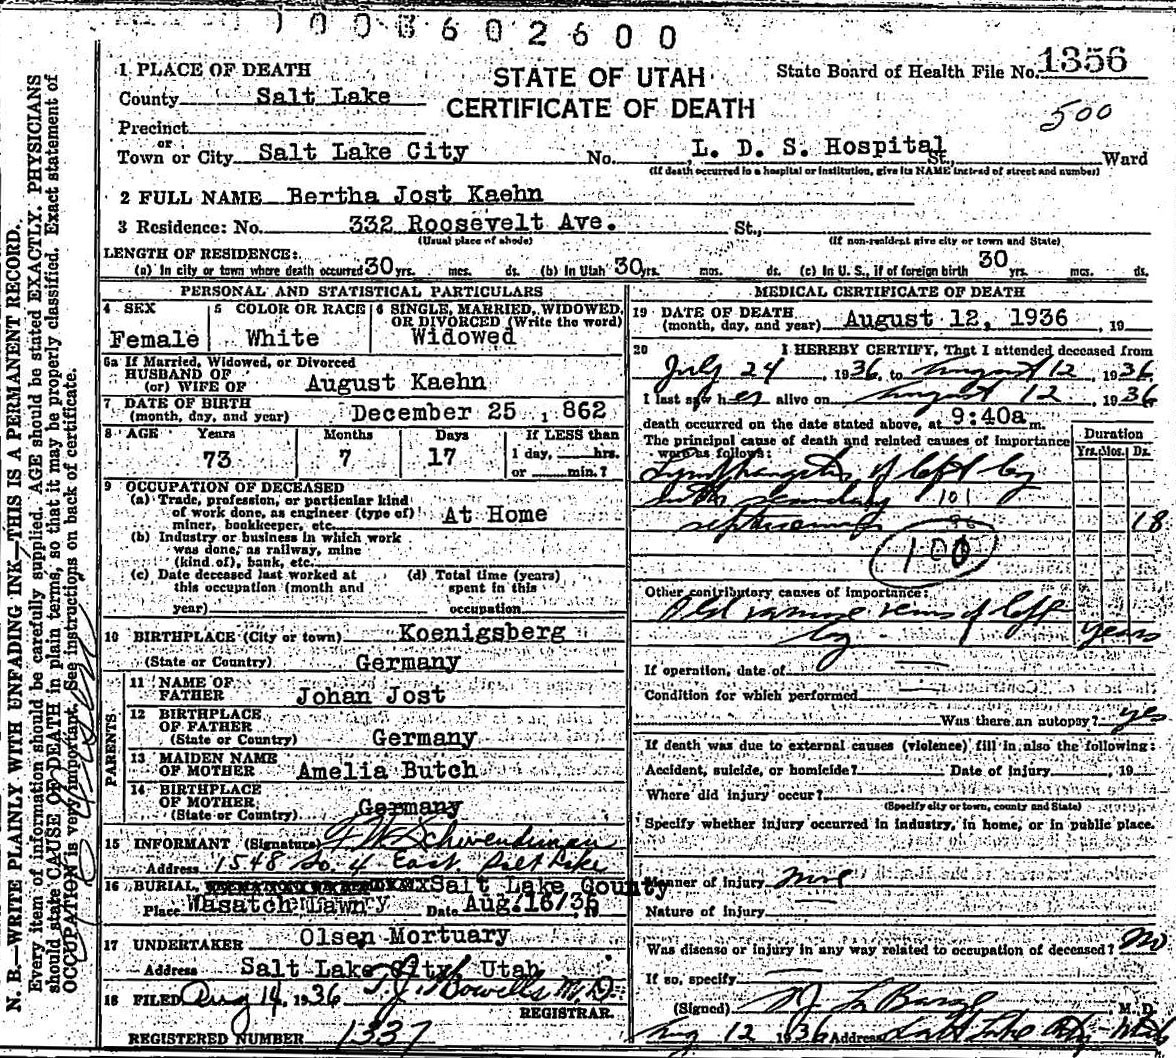 0 0 3 6 0 2 6 0 0
1 PLACE OF DEATH
STATE OF UTAH
CERTIFICATE OF DEATH
State Board of Health File No. 1356
500
County Salt Lake
Precinct
or
Town or City Salt Lake City No. L. D. S. Hospital St., Ward
(If death occurred in a hospital or institution, give its NAME instead of street and number)
2 FULL NAME Bertha Jost Kaehn
3 Residence: No. 332 Roosevelt Ave. St.,
(Usual place of abode) (If non-resident give city or town and State)
LENGTH OF RESIDENCE:
(a) In city or town where death occurred 30 yrs. mos. ds. (b) In Utah 30 yrs. mos. ds. (c) In U. S., if of foreign birth 30 yrs. mos. ds.
PERSONAL AND STATISTICAL PARTICULARS
4 SEX
Female
5 COLOR OR RACE
White
6 SINGLE, MARRIED, WIDOWED,
OR DIVORCED (Write the word)
Widowed
6a If Married, Widowed, or Divorced
HUSBAND OF
(or) WIFE OF August Kaehn
7 DATE OF BIRTH
(month, day, and year) December 25 , 1862
8 AGE Years Months Days If LESS than
73 7 17 1 day, hrs.
or min.?
9 OCCUPATION OF DECEASED
(a) Trade, profession, or particular kind
of work done, as engineer (type of)
miner, bookkeeper, etc. At Home
(b) Industry or business in which work
was done, as railway, mine
(kind of), bank, etc.
(c) Date deceased last worked at
this occupation (month and
year)
(d) Total time (years)
spent in this
occupation
10 BIRTHPLACE (City or town) Koenigsberg
(State or Country) Germany
PARENTS
11 NAME OF
FATHER Johan Jost
12 BIRTHPLACE
OF FATHER
(State or Country) Germany
13 MAIDEN NAME
OF MOTHER Amelia Butch
14 BIRTHPLACE
OF MOTHER
(State or Country) Germany
15 INFORMANT (Signature) F. W. Schwendiman
Address 1548 So. 4 East. Salt Lake
16 BURIAL, Salt Lake County
Place Wasatch Lawn Date Aug. 16/36 19
17 UNDERTAKER Olsen Mortuary
Address Salt Lake City, Utah
18 FILED Aug 14, 1936 T. J. Howells M. D.
REGISTRAR.
REGISTERED NUMBER 1337
MEDICAL CERTIFICATE OF DEATH
19 DATE OF DEATH
(month, day, and year) August 12, 1936 , 19
20 I HEREBY CERTIFY, That I attended deceased from
July 24 , 1936, to August 12 , 1936
I last saw her alive on August 12 , 1936
death occurred on the date stated above, at 9:40a m.
The principal cause of death and related causes of importance
were as follows:
Duration
Yrs. Mos. Ds.
Lymphangitis of left leg
with secondary 101
septicaemia 36 18
100
Other contributory causes of importance:
Old varicose veins of left
leg. years
If operation, date of
Condition for which performed
Was there an autopsy? yes
If death was due to external causes (violence) fill in also the following:
Accident, suicide, or homicide? Date of injury , 19
Where did injury occur?
(Specify city or town, county and State)
Specify whether injury occurred in industry, in home, or in public place.
Manner of Injury
Nature of Injury
Was disease or injury in any way related to occupation of deceased? No
If so, specify
(Signed) M. D.
Aug 12 1936 Address Salt Lake City
N. B.—WRITE PLAINLY WITH UNFADING INK—THIS IS A PERMANENT RECORD.
Every item of information should be carefully supplied. AGE should be stated EXACTLY. PHYSICIANS
should state CAUSE OF DEATH in plain terms, so that it may be properly classified. Exact statement of
OCCUPATION is very important. See instructions on back of certificate.